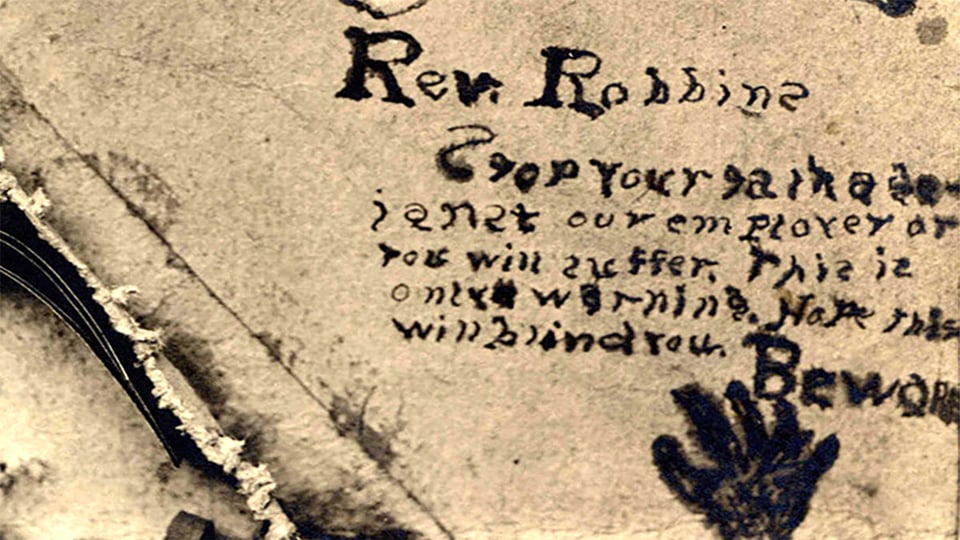 Rev. Robbins
Stop your
our employer or
you will suffer. This is
only warning. Note this
will blind you.
Bewar